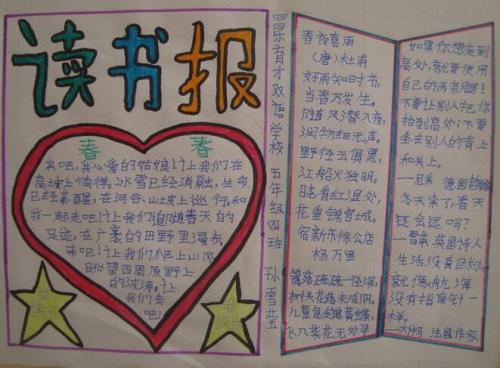 读书报
春 春
来吧,我心爱的姑娘!让我们在
高坡上倘徉。冰雪已经消融,生命
已经苏醒,在河谷、山坡上巡行和
我一起走吧!让我们追随春天的
足迹,在广袤的田野里漫步。
来吧!让我们爬上山冈,
眺望四周原野上
的波涛。让
我们走
吧!
昌乐育才双语学校 五年级四班 孙雪莹
春夜喜雨
(唐)杜甫
好雨知时节,
当春乃发生。
随风潜入夜,
润物细无声。
野径云俱黑,
江船火独明。
晓看红湿处,
花重锦官城。
宿新市徐公店
杨万里
篱落疏疏一径深,
树头花落未成阴。
儿童急走追黄蝶,
飞入菜花无处寻
如果你想走到
高处,就要使用
自己的两条腿!
不要让别人把你
抬到高处;不要
坐在别人的背上
和头上。
—尼采 德国哲学家
冬天来了,春天
还会远吗?
—雪莱 英国诗人
生活没有目标
就像航海
没有指南针一
样。
—大仲马 法国作家